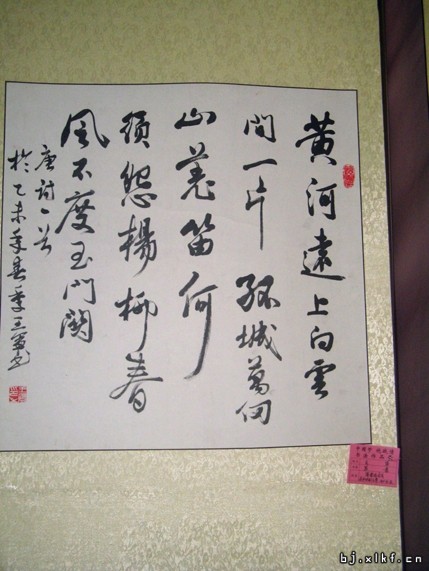 黄河遠上白雲
間一片孤城萬仞
山羌笛何
須怨楊柳春
風不度玉門關
唐詩一首
於乙未年春季
bj.xlkf.cn